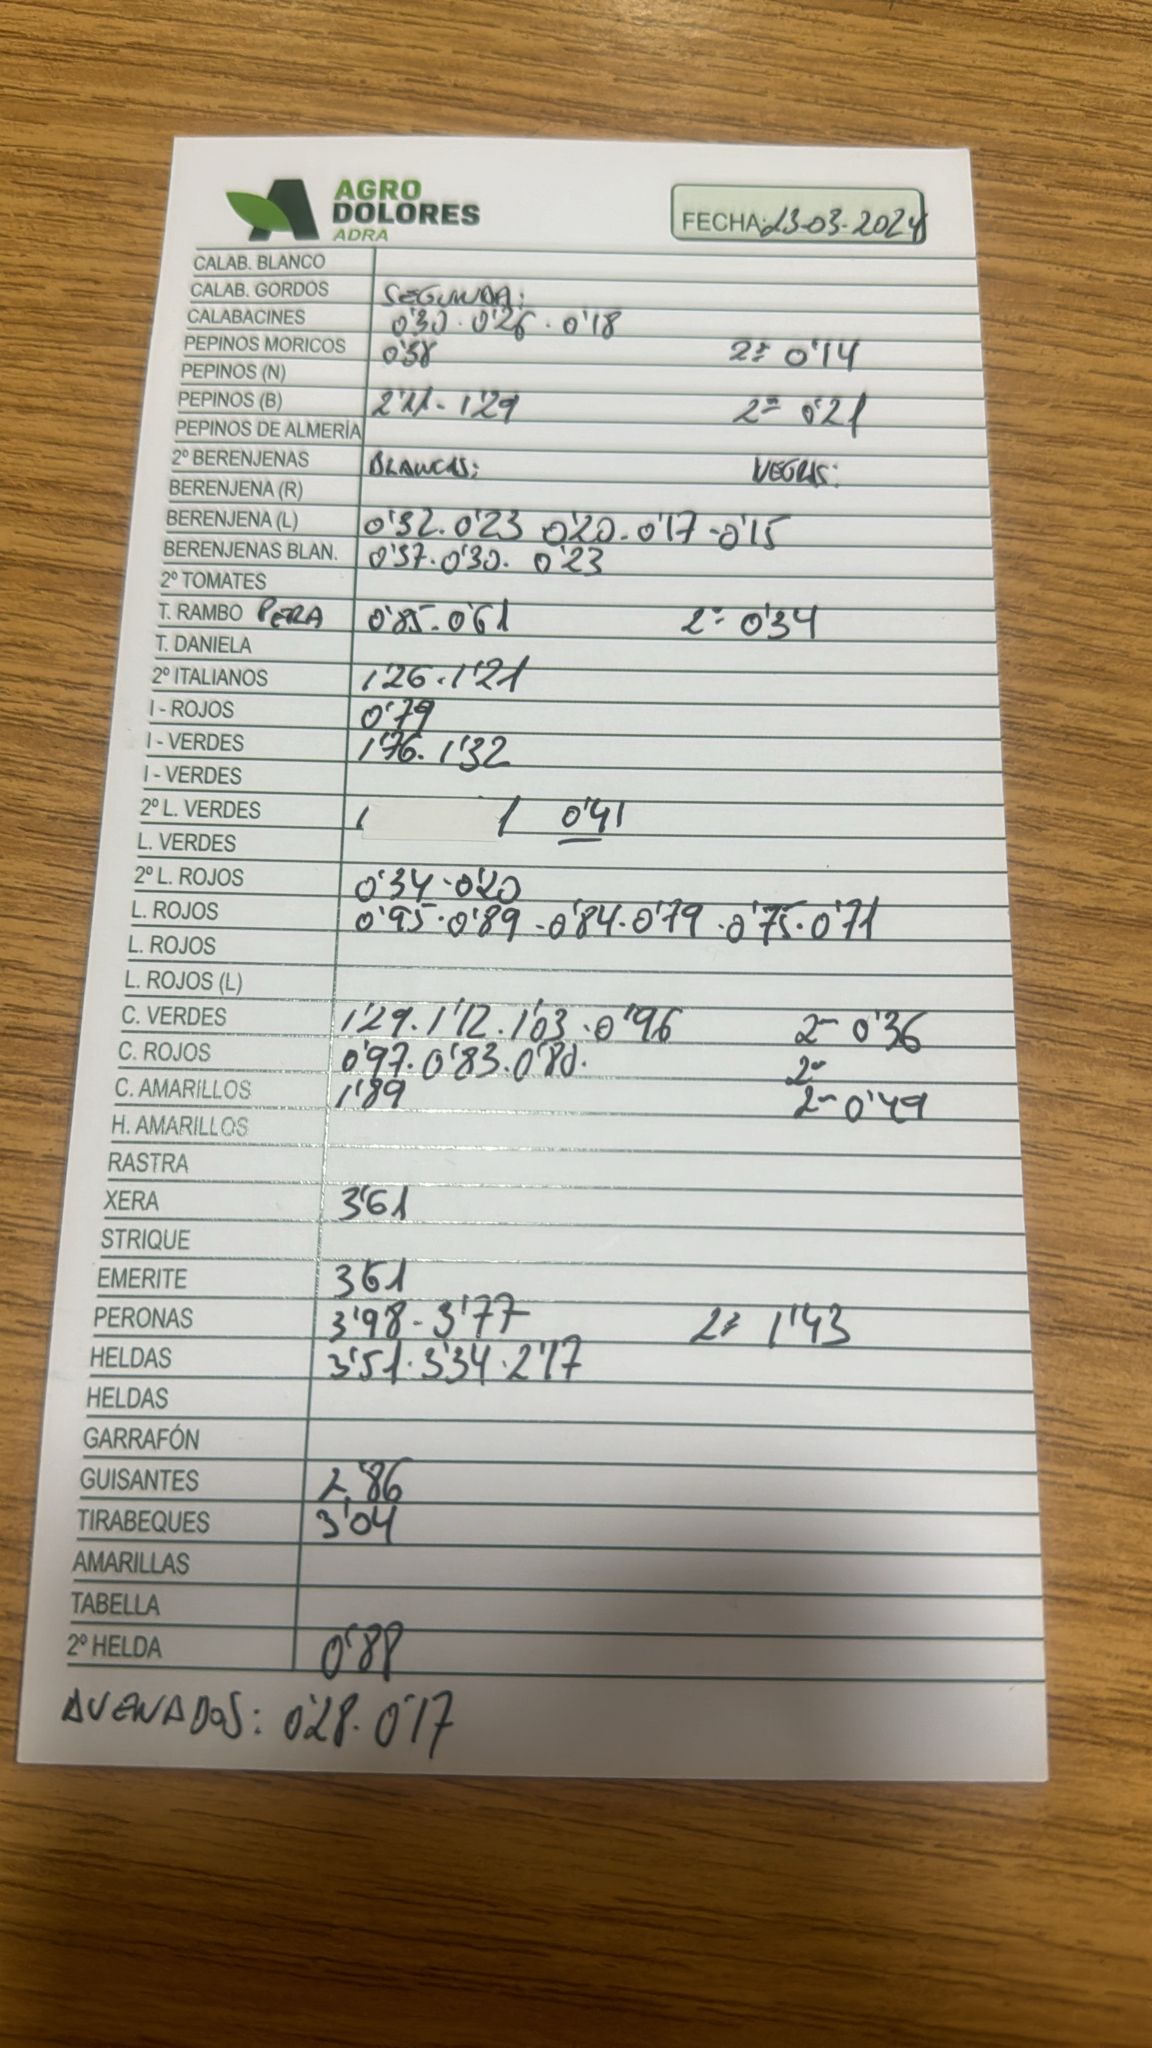 AGRO
DOLORES
ADRA
FECHA: 23-03-2024
CALAB. BLANCO
CALAB. GORDOS SEGUNDA:
CALABACINES 0'30 · 0'26 · 0'18
PEPINOS MORICOS 0'58 2ª 0'14
PEPINOS (N)
PEPINOS (B) 2'11 - 1'29 2ª 0'21
PEPINOS DE ALMERÍA
2º BERENJENAS BLANCAS: NEGRAS:
BERENJENA (R)
BERENJENA (L) 0'32 . 0'23 0'20 . 0'17 - 0'15
BERENJENAS BLAN. 0'37 . 0'30 . 0'23
2º TOMATES
T. RAMBO PERA 0'85 . 0'61 2ª 0'34
T. DANIELA
2º ITALIANOS 1'26 . 1'21
I - ROJOS 0'79
I - VERDES 1'76 . 1'32
I - VERDES
2º L. VERDES 0'41
L. VERDES
2º L. ROJOS 0'34 · 0'20
L. ROJOS 0'95 · 0'89 - 0'84 · 0'79 · 0'75 · 0'71
L. ROJOS
L. ROJOS (L)
C. VERDES 1'29 . 1'12 . 1'03 . 0'96 2ª 0'36
C. ROJOS 0'97 . 0'83 . 0'80 . 2ª
C. AMARILLOS 1'89 2ª 0'49
H. AMARILLOS
RASTRA
XERA 3'61
STRIQUE
EMERITE 3'61
PERONAS 3'98 - 3'77 2ª 1'43
HELDAS 3'51 · 3'34 · 2'17
HELDAS
GARRAFÓN
GUISANTES 2'86
TIRABEQUES 3'04
AMARILLAS
TABELLA
2º HELDA 0'88
AVENADOS: 0'28 . 0'17